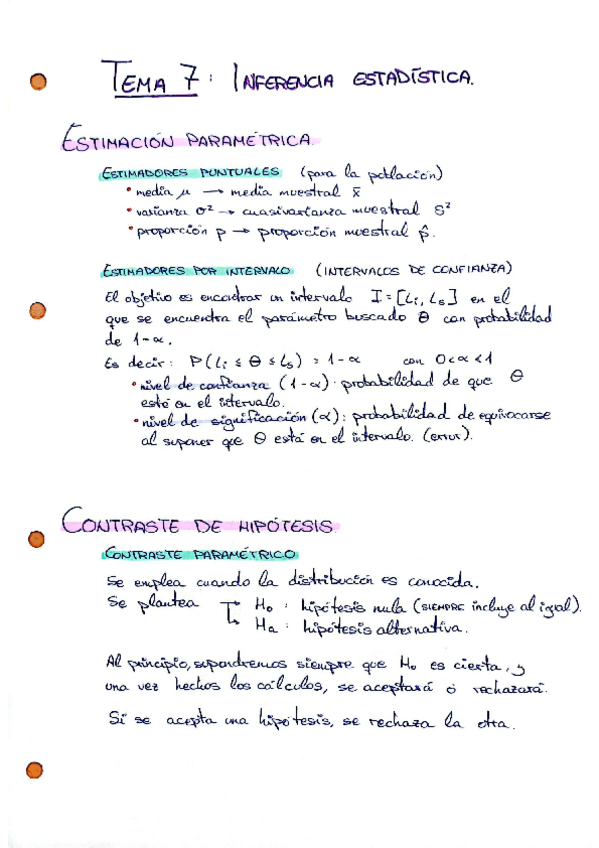 TEMA 7: INFERENCIA ESTADÍSTICA.
ESTIMACIÓN PARAMÉTRICA
ESTIMADORES PUNTUALES (para la población)
• media μ → media muestral x̄
• varianza σ² → cuasivarianza muestral S²
• proporción p → proporción muestral p̂.
ESTIMADORES POR INTERVALO (INTERVALOS DE CONFIANZA)
El objetivo es encontrar un intervalo I = [Li, Ls] en el
que se encuentra el parámetro buscado θ con probabilidad
de 1-α.
Es decir: P(Li ≤ θ ≤ Ls) = 1-α con 0<α<1
• nivel de confianza (1-α): probabilidad de que θ
esté en el intervalo.
• nivel de significación (α): probabilidad de equivocarse
al suponer que θ está en el intervalo. (error).
CONTRASTE DE HIPÓTESIS
CONTRASTE PARAMÉTRICO
Se emplea cuando la distribución es conocida.
Se plantea H₀: hipótesis nula (SIEMPRE incluye al igual).
Ha: hipótesis alternativa.
Al principio, supondremos siempre que H₀ es cierta, y
una vez hechos los cálculos, se aceptará o rechazará.
Si se acepta una hipótesis, se rechaza la otra.